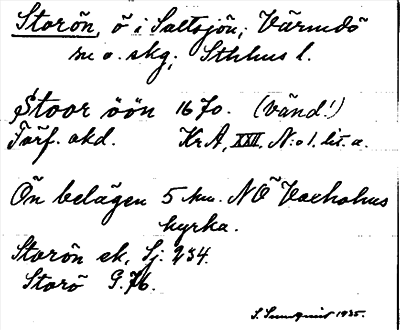 Storön, ö i Saltsjön, Värmdö
sn o. skg; Sthlms l.
Stoor öön 1670. (vänd!)
Förf. okd. KrA, XXII, N:o 1. lit. a.
Ön belägen 5 km. NÖ Vaxholms
kyrka.
Storön ek. Sj. 234.
Storö G.76.
S. Sundqvist 1935.